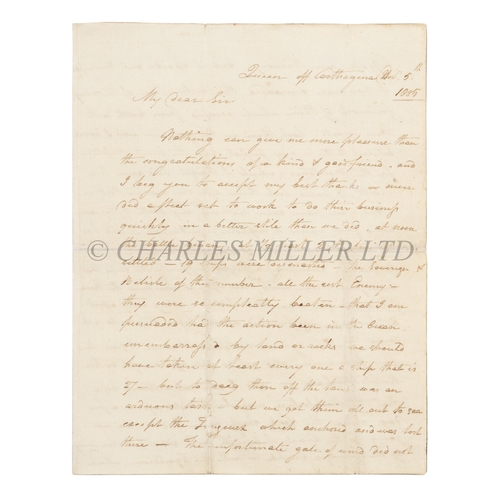 Queen off Carthagena Dec. 5th
1805
My Dear Sir
Nothing can give me more pleasure than
the congratulations of a kind & good friend - and
I beg you to accept my best thanks - never
did a fleet set to work to do their business
quickly in a better stile than we did - at noon
© CHARLES MILLER LTD
19 ships were the &
Belisle of this number - the Enemy -
they were so compleatly beaten - that I am
persuaded had the action been in the Ocean
unembarrass'd by land or rocks we should
have taken at least every one a ship that is
27 - but to drag them off the lee was an
arduous task - but we got them all out to sea
except the which anchored and was lost
there - The unfortunate gale of wind did not